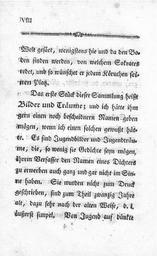 VIII
Welt gesäet, wenigstens hie und da den Bo-
den finden werden, von welchem Sokrates
redet, und so wünschet er jedem Körnchen sei-
nen Platz.
Das erste Stück dieser Sammlung heißt
Bilder und Träume; und ich hätte ihm
gern einen noch bescheidnern Namen geben
mögen, wenn ich einen solchen gewußt hät-
te. Es sind Jugendbilder und Jugendträu-
me, die, so wenig sie Gedichte seyn mögen,
ihrem Verfasser den Namen eines Dichters
zu erwerben auch ganz und gar nicht im Sin-
ne haben. Sie wurden nicht zum Druck
geschrieben, sind zum Theil zwanzig Jahr
alt, dazu sehr nach der alten Weise, d. i.
äußerst simpel. Von Jugend auf dünkte